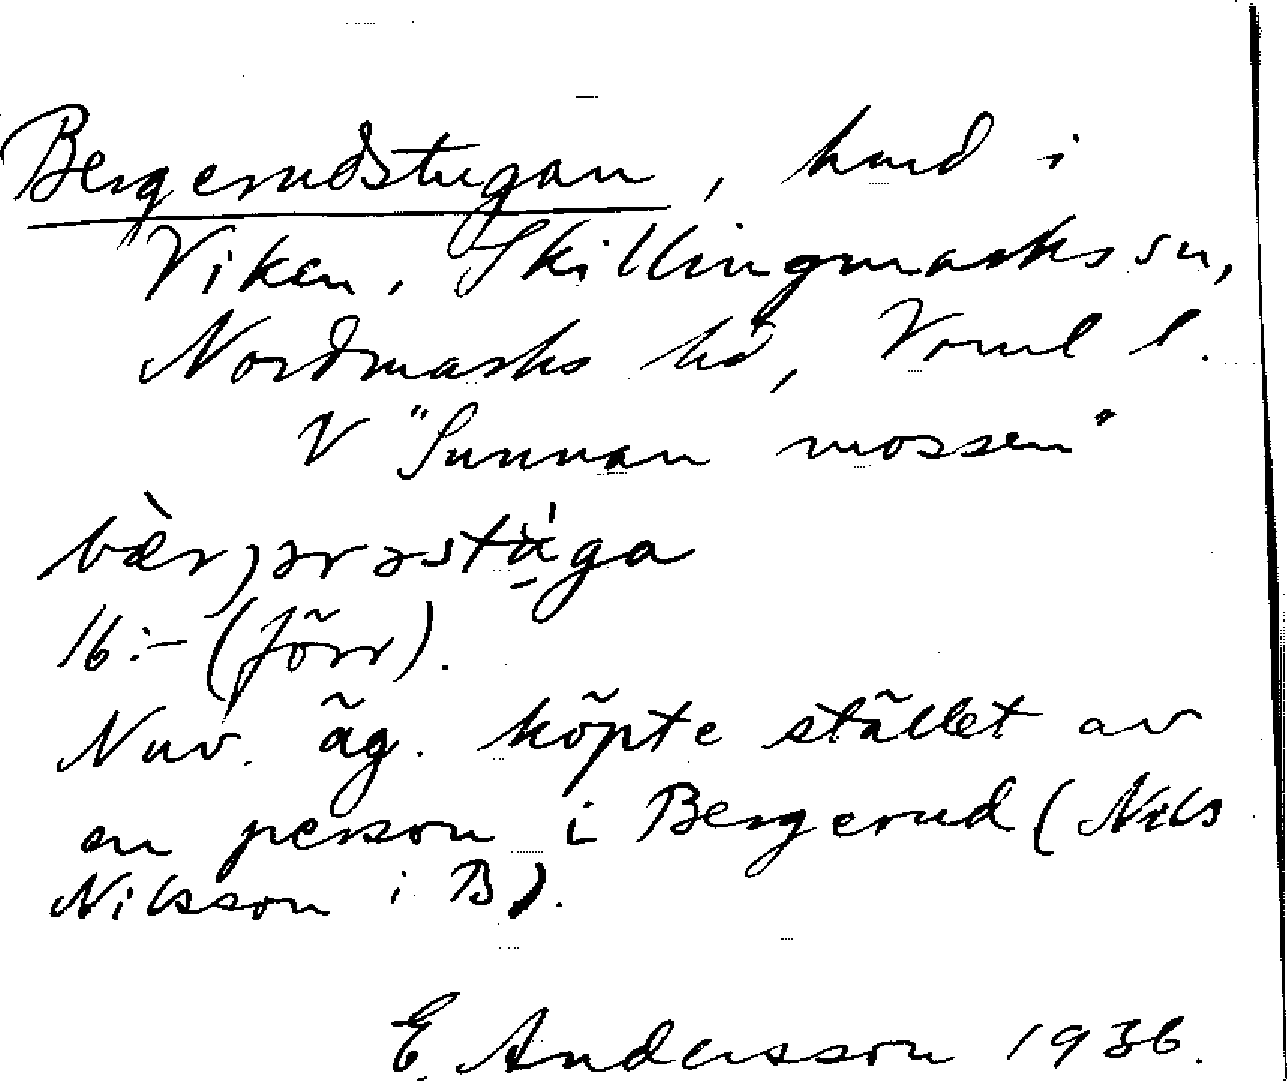 Bergerudstugan, hmd i
Viken, Skillingmarks sn,
Nordmarks hd, Vrml l.
V "Sunnan mossen"
bær,ərəstuga
16:- (förr).
Nuv. äg. köpte stället av
en person i Bergerud (Nils
Nilsson i B).
E. Andersson 1936.